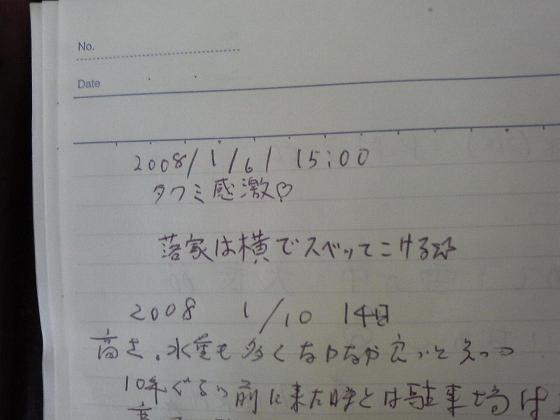 No.
Date
2008/1/6/ 15:00
タクミ感激♡
落家は横でスベッてこける☆
2008 1/10 14日
高さ、水量も多くなかなか良いと思つ
10年ぐらい前に来た時とは駐車場は